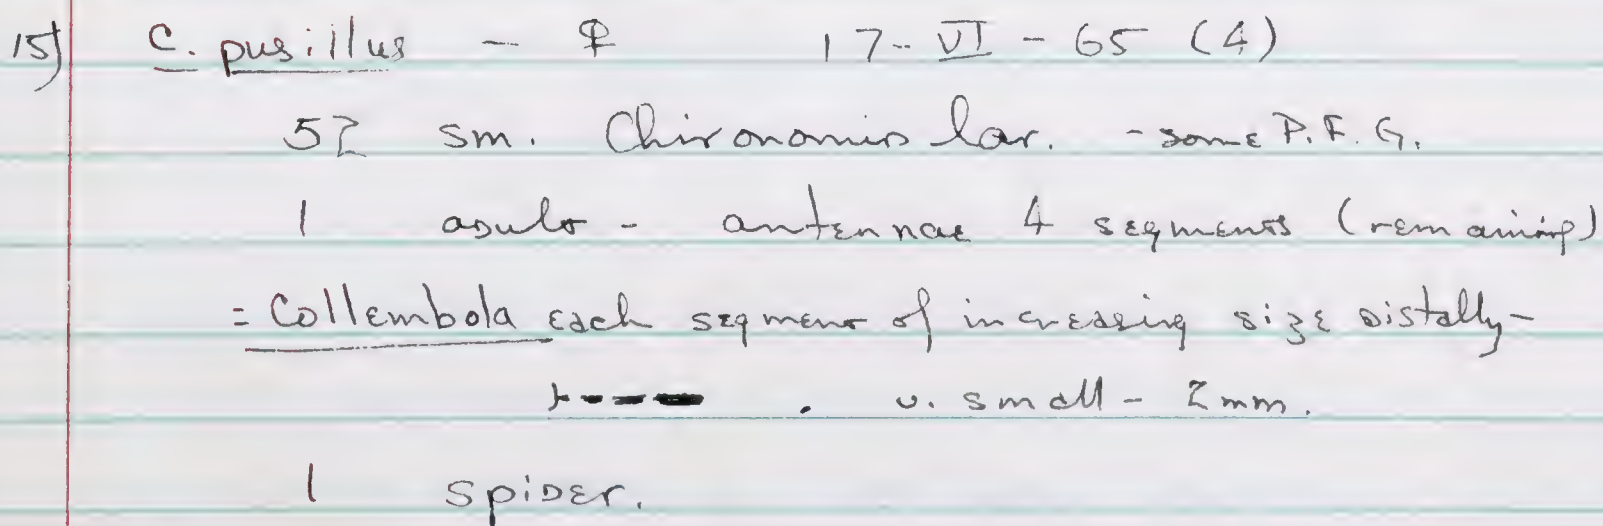 15) C. pusillus - ♀ 17-VI-65 (4)
52 sm. Chironomid lar. - some P.F.G.
1 adult - antennae 4 segments (remaining)
= Collembola each segment of increasing size distally -
v. small - 2mm.
1 spider.